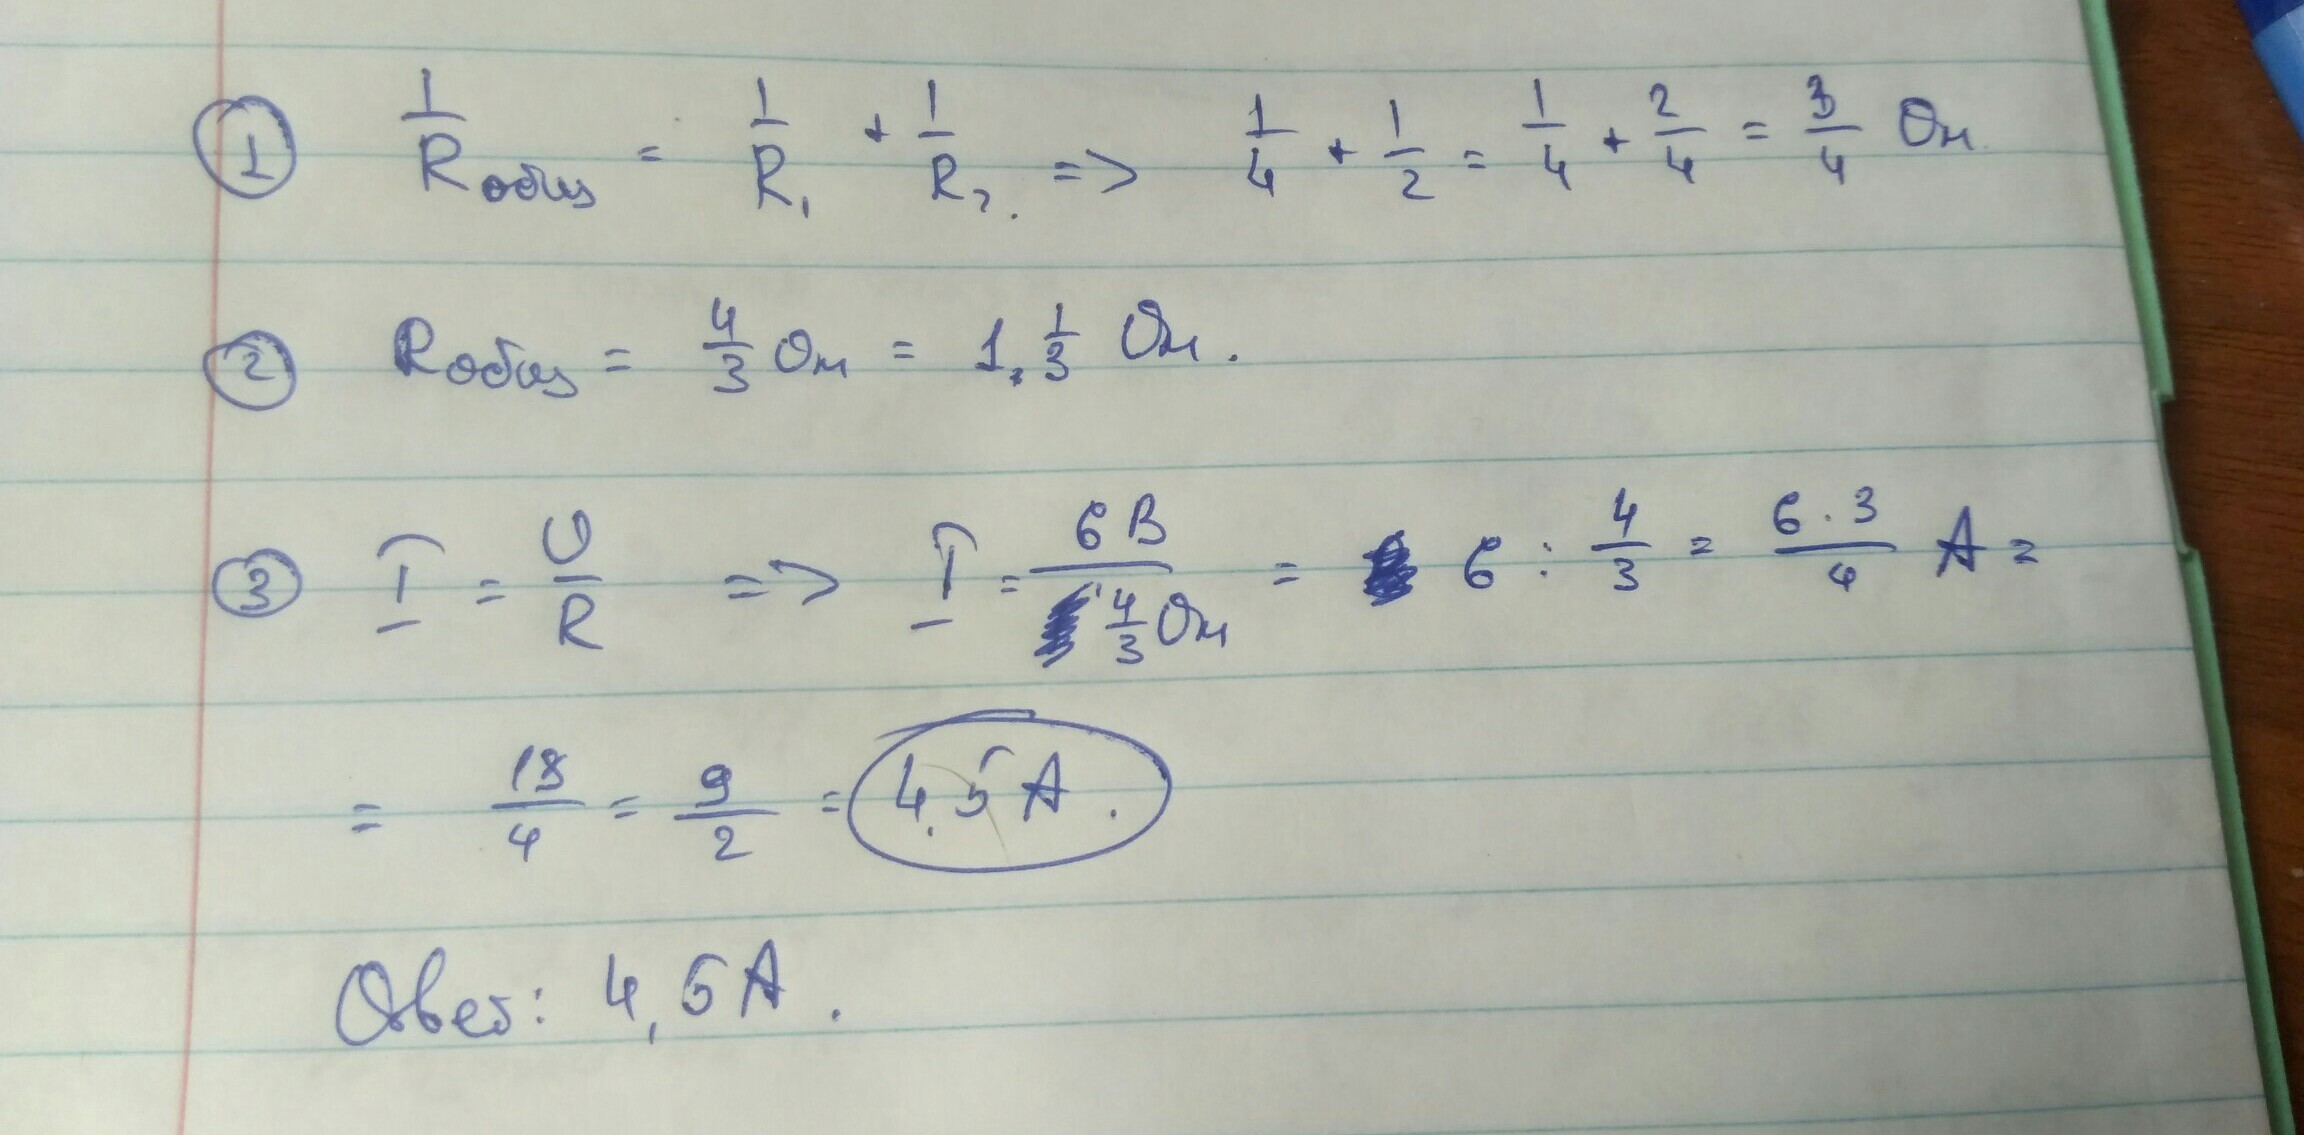 ① 1/Rобщ = 1/R₁ + 1/R₂. => 1/4 + 1/2 = 1/4 + 2/4 = 3/4 Ом
② Rобщ = 4/3 Ом = 1 1/3 Ом.
③ I = U/R => I = 6 В / 4/3 Ом = 6 : 4/3 = 6 · 3 / 4 А =
= 18/4 = 9/2 = 4,5 А.
Ответ: 4,5 А.